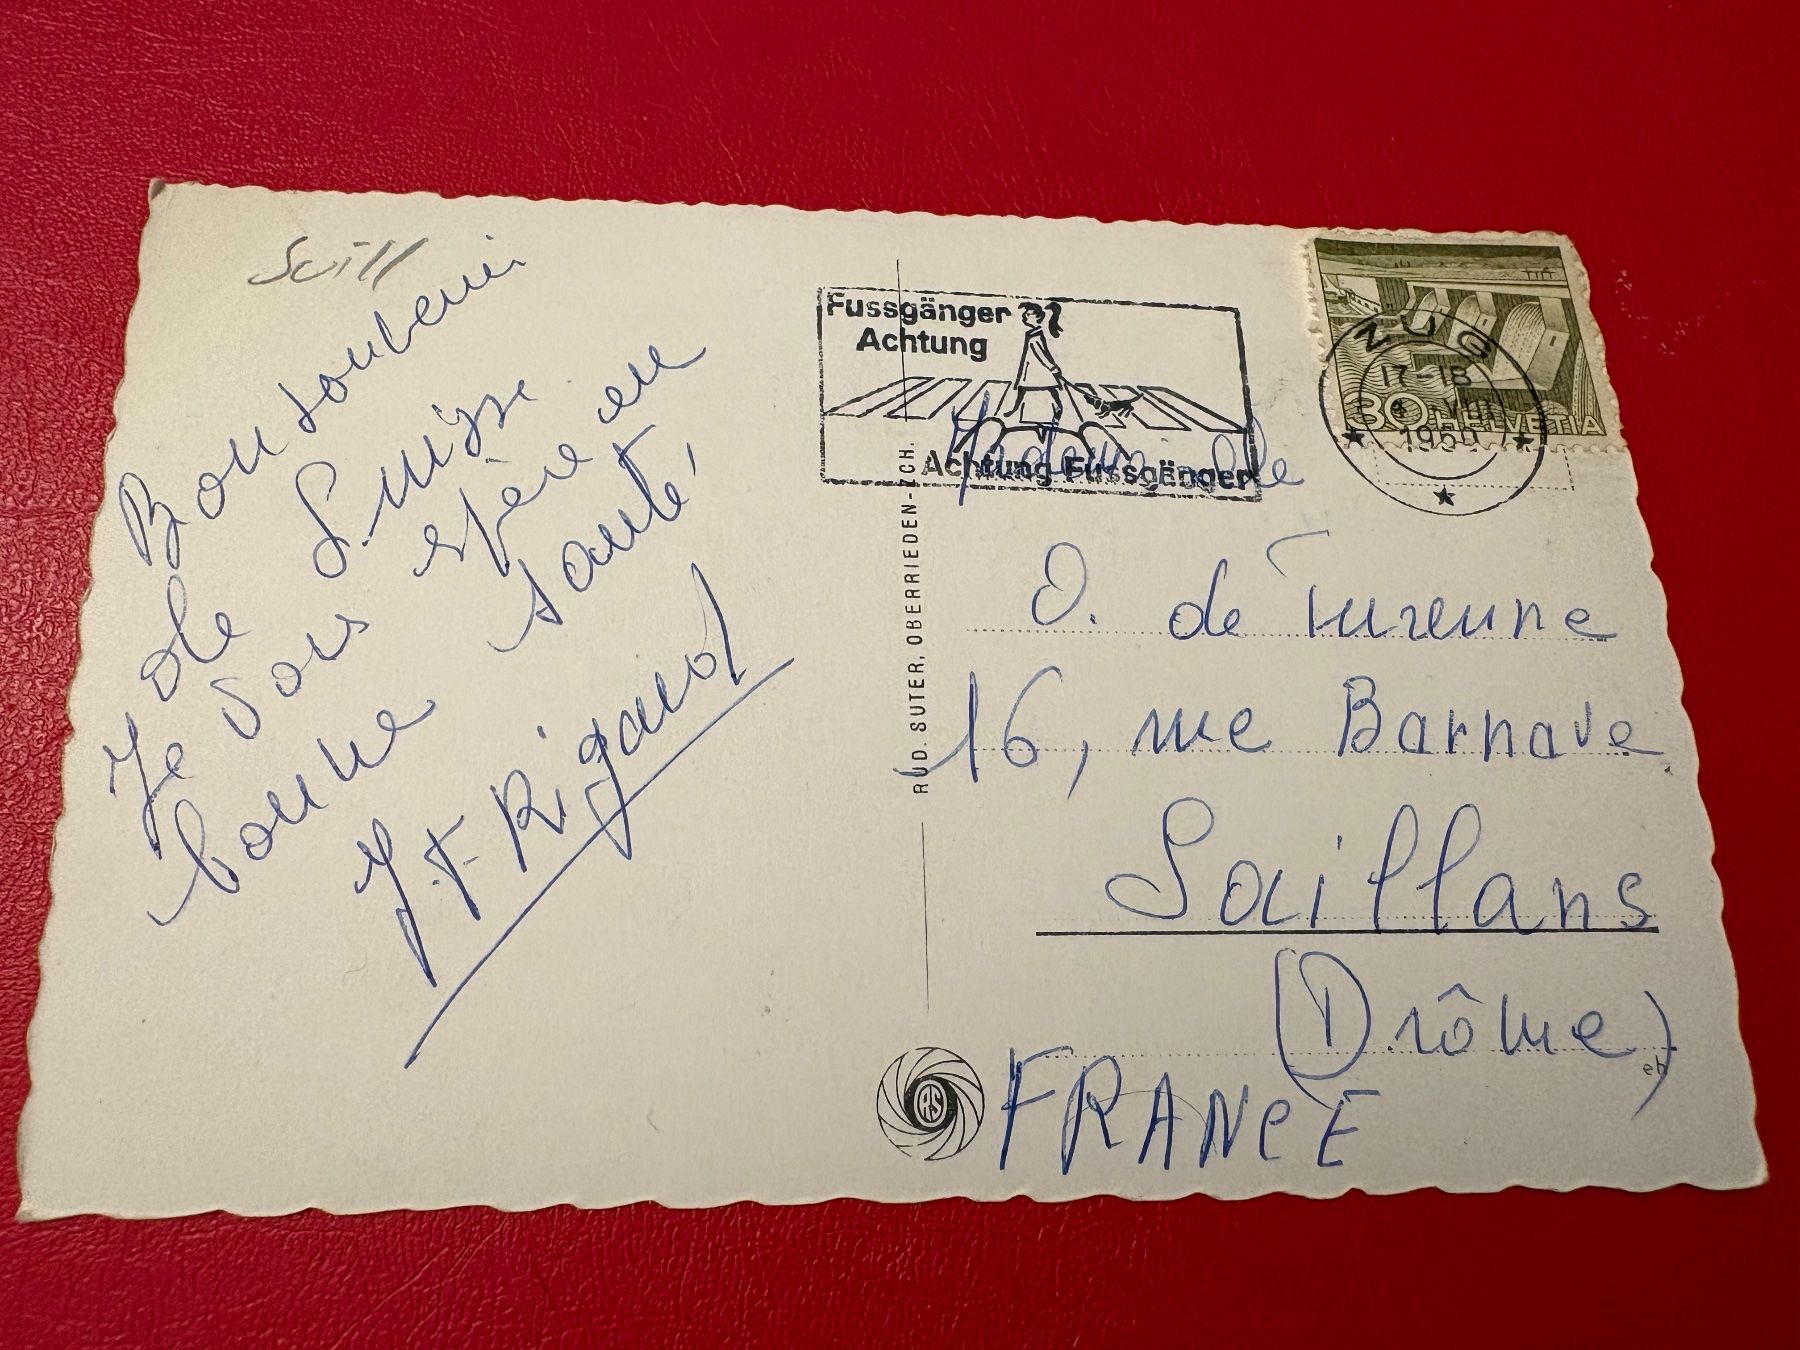 Suill
Bon souvenir
de Suisse
Je vous espère en
bonne santé,
J.F Rigaud
Fussgänger
Achtung
Achtung Fussgänger
RUD. SUTER, OBERRIEDEN-ZCH.
ZUG
17-18
VIII
1960
30 HELVETIA
Mademoiselle
O. de Turenne
16, rue Barnave
Saillans
(Drôme)
FRANCE
eh